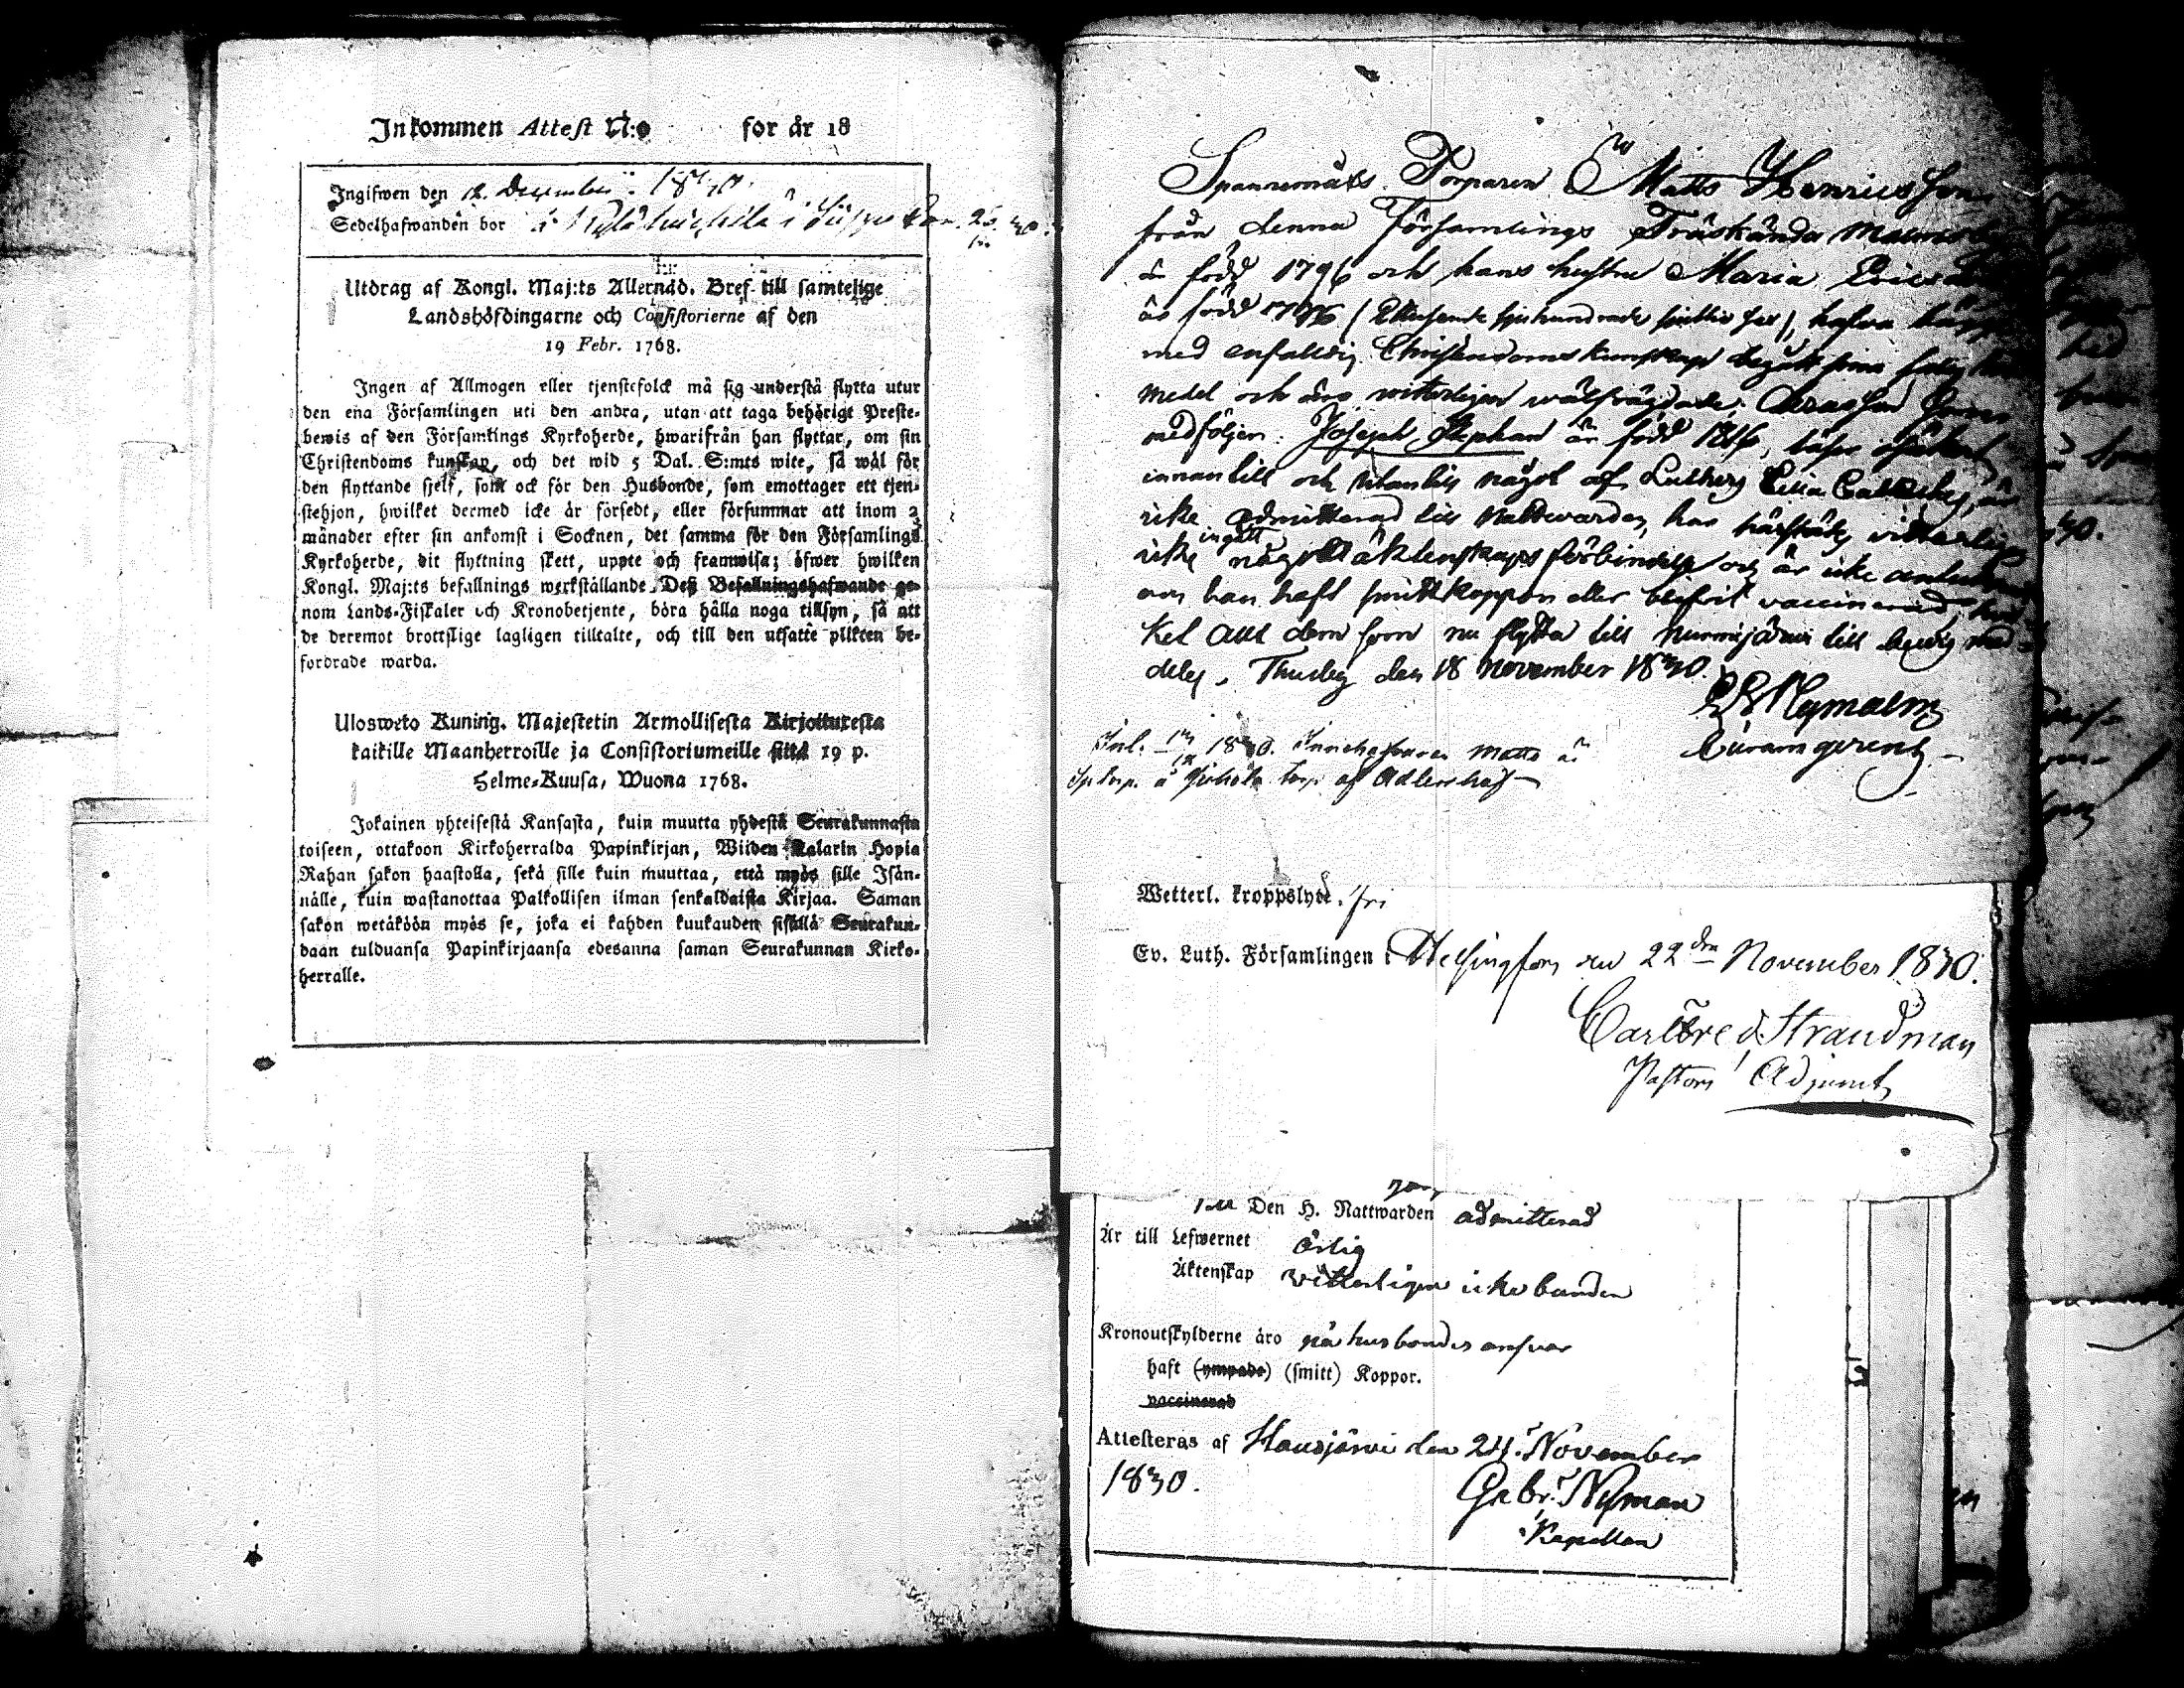 Inkommen Attest N:o för år 18
Ingifwen den 12. December 1830.
Sedelhafwanden bor i
Utdrag af Kongl. Maj:ts Allernåd. Bref till samtelige
Landshöfdingarne och Consistorierne af den
19 Febr. 1768.
Ingen af Allmogen eller tjenstefolck må sig understå flytta utur
den ena Församlingen uti den andra, utan att taga behörigt Preste-
bewis af den Församlings Kyrkoherde, hwarifrån han flyttar, om sin
Christendoms kunskap, och det wid 5 Dal. S:mts wite, så wäl för
den flyttande sjelf, som ock för den Husbonde, som emottager ett tjen-
stehjon, hwilket dermed icke är försedt, eller försummar att inom 2
månader efter sin ankomst i Socknen, det samma för den Församlings
Kyrkoherde, dit flyttning skett, uppte och framwisa; öfwer hwilken
Kongl. Maj:ts befallnings werkställande Deß Befallningshafwande ge-
nom Lands-Fiskaler och Kronobetjente, böra hålla noga tillsyn, så att
de deremot brottslige lagligen tilltalte, och till den utsatte plikten be-
fordrade warda.
Ulosweto Kuning. Majestetin Armollisesta Kirjotuxesta
kaikille Maanherroille ja Consistoriumeille siitä 19 p.
Helme-Kuusa, Wuona 1768.
Jokainen yhteisestä Kansasta, kuin muutta yhdestä Seurakunnasta
toiseen, ottakoon Kirkoherralda Papinkirjan, Wiiden Talarin Hopia
Rahan sakon haastolla, sekä sille kuin muuttaa, että myös sille Isän-
nälle, kuin wastanottaa Palkollisen ilman senkaldaista Kirjaa. Saman
sakon wetäköön myös se, joka ei kahden kuukauden sisällä Seurakun-
daan tulduansa Papinkirjaansa edesanna saman Seurakunnan Kirko-
herralle.
Spannemåls Torparen Matts Henricsson
från denna Församlings Träskända
är född 1796 och hans hustru Maria Ericsd
är född 1796 (Ettusende sjuhundrade nittio sex), hafwa
med enfaldig Christendoms kunskap begått sina salig
medel och äro witterligen wälfrägdade.
medföljer: Joseph Stephan är född 1816, läser
innantill och utantill något af Lutheri Lilla Cateches, är
icke admitterad till Nattwarden, har härstädes witterligen
icke ingått något äktenskaps förbindelse och är icke
om han haft smittkoppor eller blifvit vaccinerad,
ket allt dem som nu flytta till Nurmijärvi till bewis med-
deles, Thusby den 18 November 1830.
Nymalm
Curam gerens
Inl. 1830. Innehafvaren Matts är
af Adlershof
Wetterl. kroppslyte. fri
Ev. Luth. Församlingen i Helsingfors den 22dra November 1830.
Carl Fred. Strandman
Pastors Adjunct
Till Den H. Nattwarden admitterad
Är till Lefwernet ärlig
Äktenskap witterligen icke bunden
Kronoutskylderne äro på husbondes answar
haft (ympade) (smitt) Koppor.
vaccinerad
Attesteras af Hausjärvi den 24. November
1830.
Gabr. Nyman
Kapellan